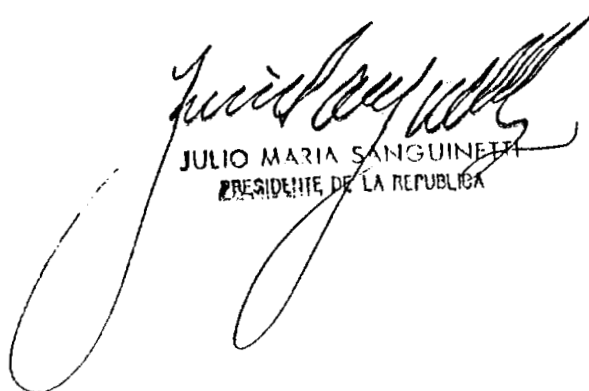 JULIO MARIA SANGUINETTI
PRESIDENTE DE LA REPUBLICA